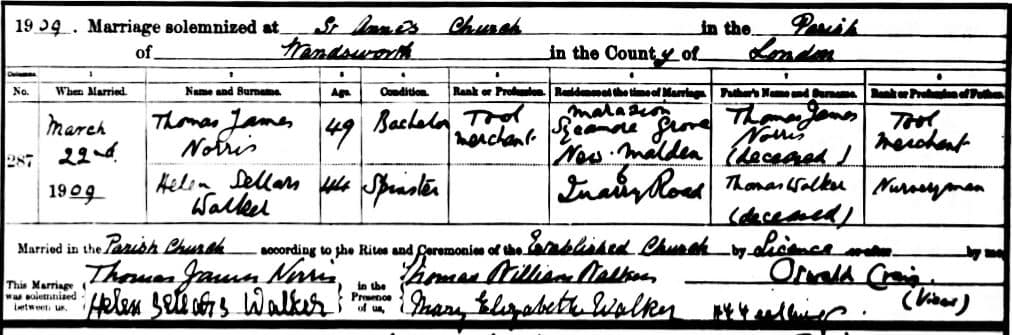 1909. Marriage solemnized at St Anne's Church in the Parish
of Wandsworth in the County of London
Columns. 1 2 3 4 5 6 7 8
No. When Married. Name and Surname. Age. Condition. Rank or Profession. Residence at the time of Marriage. Father's Name and Surname. Rank or Profession of Father.
287
March 22nd. 1909
Thomas James Norris
49
Bachelor
Tool merchant
Marazion Sycamore Grove New Malden
Thomas James Norris (deceased)
Tool Merchant
Helen Sellars Walker
44
Spinster
6 Quarry Road
Thomas Walker (deceased)
Nurseryman
Married in the Parish Church according to the Rites and Ceremonies of the Established Church by Licence by me,
This Marriage was solemnized between us, Thomas James Norris Helen Sellars Walker
in the Presence of us, Thomas William Walker Mary Elizabeth Walker
Oswald Craig (Vicar)